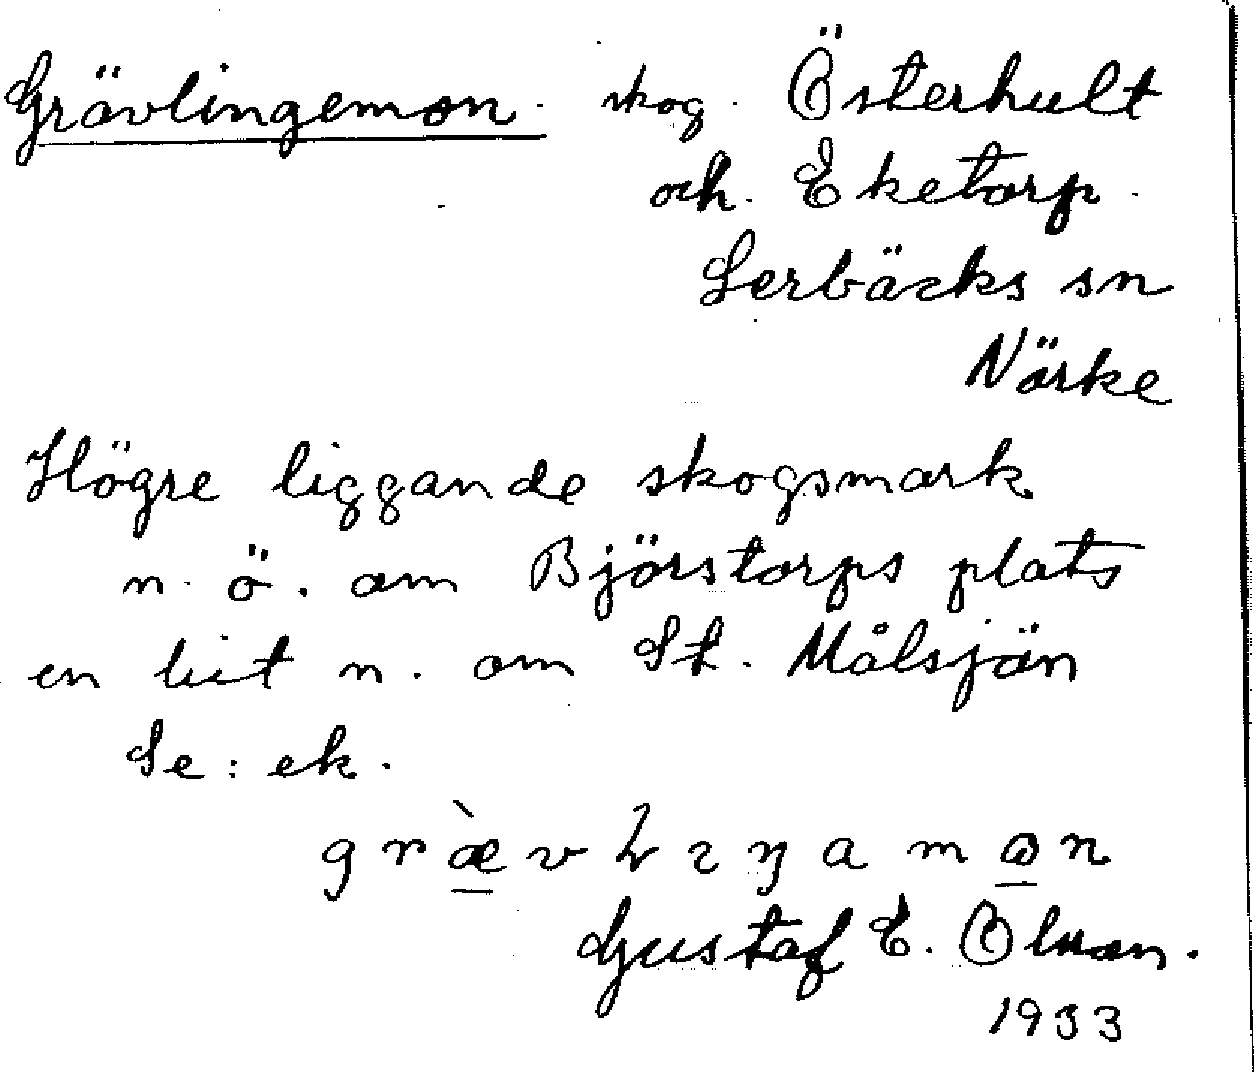 Grävlingemon. skog. Österhult
och. Eketorp.
Lerbäcks sn
Närke
Högre liggande skogsmark
n. ö. om Björstorps plats
en bit n. om St. Målsjön
Se: ek.
Gustaf E. Olsson.
1933